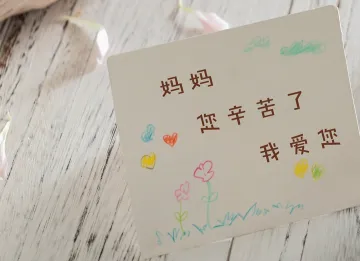 妈妈
您辛苦了
我爱您